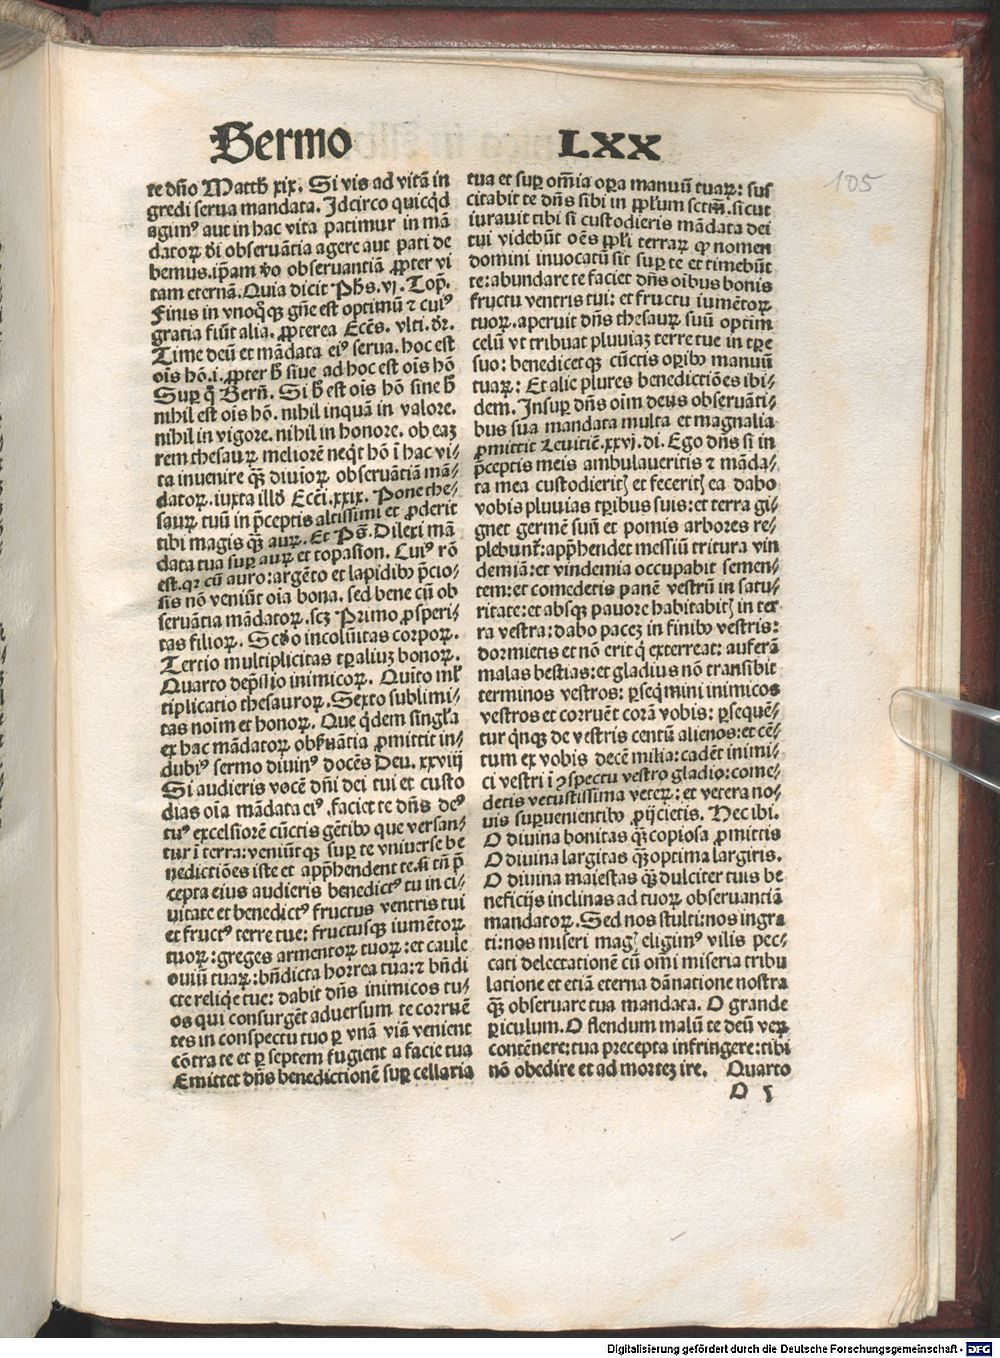 Sermo LXX
105
te dño Matth xix. Si vis ad vitã in
gredi serua mandata. Idcirco quicq̇d
agim⁹ aut in hac vita patimur in mã
datoꝝ di obseruãtia agere aut pati de
bemus. ip̃am ṽo obseruantiã ꝓpter vi
tam eternã. Quia dicit Ph̃s. vj. Top̃.
Finis in vnoq̇ꝙ gñe est optimũ ⁊ cui⁹
gratia fiũt alia. ꝓpterea Ecc̃s. vlti. dr̃.
Time deũ et mãdata ei⁹ serua. hoc est
oĩs hõ. i. ꝓpter h̃ siue ad hoc est oĩs hõ
Suꝑ q̃ Berñ. Si h̃ est oĩs hõ sine h̃
nihil est oĩs hõ. nihil inquã in valore.
nihil in vigore. nihil in honore. ob eaꝫ
rem thesauꝝ meliorẽ neq̇t hõ ĩ hac vi⸗
ta inuenire q̃ꝫ diuĩoꝝ obseruãtiã mã⸗
datoꝝ. iuxta illđ Ecc̃i. xxix. Pone the⸗
sauꝝ tuũ in p̃ceptis altissimi et ꝓderit
tibi magis q̃ꝫ auꝝ. Et Ps̃. Dilexi mã
data tua suꝑ auꝝ et topasion. Cui⁹ rõ
est. qꝛ cũ auro: argẽto et lapidibꝰ p̃cio⸗
sis nõ veniũt oĩa bona. sed bene cũ ob
seruãtia mãdatoꝝ. scꝫ Primo ꝓsperi⸗
tas filioꝝ. Scđo incolũitas corpoꝝ.
Tertio multiplicitas tꝑaliuꝫ bonoꝝ.
Quarto dep̃ssio inimicoꝝ. Quĩto ml̃
tiplicatio thesauroꝝ. Sexto sublimi⸗
tas noĩm et honoꝝ. Que q̇dem singl̃a
ex hac mãdatoꝝ obẜuãtia ꝓmittit in⸗
dubi⁹ sermo diuin⁹ docẽs Deu. xxviij
Si audieris vocẽ dñi dei tui et custo
dias oĩa mãdata ei⁹. faciet te dñs de⁹
tu⁹ excelsiorẽ cũctis gẽtibꝰ que versan⸗
tur ĩ terra: veniũtꝙ suꝑ te vniuerse be
nedictiões iste et app̃hendent te. si tñ p̃
cepta eius audieris benedict⁹ tu in ci⸗
uitate et benedict⁹ fructus ventris tui
et fruct⁹ terre tue: fructusꝙ iumẽtoꝝ
tuoꝝ: greges armentoꝝ tuoꝝ: et caule
ouiũ tuaꝝ: bñdicta horrea tua: ⁊ bñdi
cte reliq̇e tue: dabit dñs inimicos tu⸗
os qui consurgẽt aduersum te corruẽ
tes in conspectu tuo ꝑ vnã viã venient
cõtra te et ꝑ septem fugient a facie tua
Emittet dñs benedictionẽ suꝑ cellaria
tua et suꝑ omĩa oꝑa manuũ tuaꝝ: sus
citabit te dñs sibi in ꝓpl̃um sctm̃. sicut
iurauit tibi si custodieris mãdata dei
tui videbũt oẽs ꝓpl̃i terraꝝ ꝙ nomen
domini inuocatũ sit suꝑ te et timebũt
te: abundare te faciet dñs oĩbus bonis
fructu ventris tui: et fructu iumẽtoꝝ
tuoꝝ. aperuit dñs thesauꝝ suũ optim
celũ vt tribuat pluuiaꝫ terre tue in tꝑe
suo: benedicetꝙ cũctis oꝑibꝰ manuũ
tuaꝝ: Et alie plures benedictiões ibi⸗
dem. Insuꝑ dñs oĩm deus obseruãti⸗
bus sua mandata multa et magnalia
ꝓmittit Leuitiẽ. xxvj. dĩ. Ego dñs si in
p̃ceptis meis ambulaueritis ⁊ mãda⸗
ta mea custodieritꝭ et feceritꝭ ea dabo
vobis pluuias tꝑibus suis: et terra gi⸗
gnet germẽ suũ et pomis arbores re⸗
plebunt̃: app̃hendet messiũ tritura vin
demiã: et vindemia occupabit semen⸗
tem: et comedetis panẽ vestrũ in satu⸗
ritate: et absꝙ pauore habitabitꝭ in ter
ra vestra: dabo paceꝫ in finibꝰ vestris:
dormietis et nõ erit q̇ exterreat: auferã
malas bestias: et gladius nõ transibit
terminos vestros: ꝑseq̃mini inimicos
vestros et corruẽt corã vobis: ꝑsequẽ⸗
tur q̇nꝙ de vestris centũ alienos: et cẽ⸗
tum ex vobis decẽ milia: cadẽt inimi⸗
ci vestri ĩ ꝯspectu vestro gladio: come⸗
detis vetustissima veteꝝ: et vetera no⸗
uis suꝑuenientibꝰ ꝓijcietis. Hec ibi.
O diuina bonitas q̃ꝫ copiosa ꝓmittis
O diuina largitas q̃ꝫ optima largiris.
O diuina maiestas q̃ꝫ dulciter tuis be
neficijs inclinas ad tuoꝝ obseruantiã
mandatoꝝ. Sed nos stulti: nos ingra
ti: nos miseri magꝭ eligim⁹ vilis pec⸗
cati delectationẽ cũ omĩ miseria tribu
latione et etiã eterna dãnatione nostra
q̃ꝫ obseruare tua mandata. O grande
ꝑiculum. O flendum malũ te deũ veꝝ
contẽnere: tua precepta infringere: tibi
nõ obedire et ad morteꝫ ire. Quarto
O 5
Digitalisierung gefördert durch die Deutsche Forschungsgemeinschaft - DFG